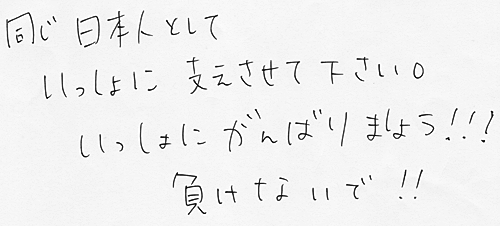 同じ日本人として
いっしょに支えさせて下さい。
いっしょにがんばりましょう!!!
負けないで!!